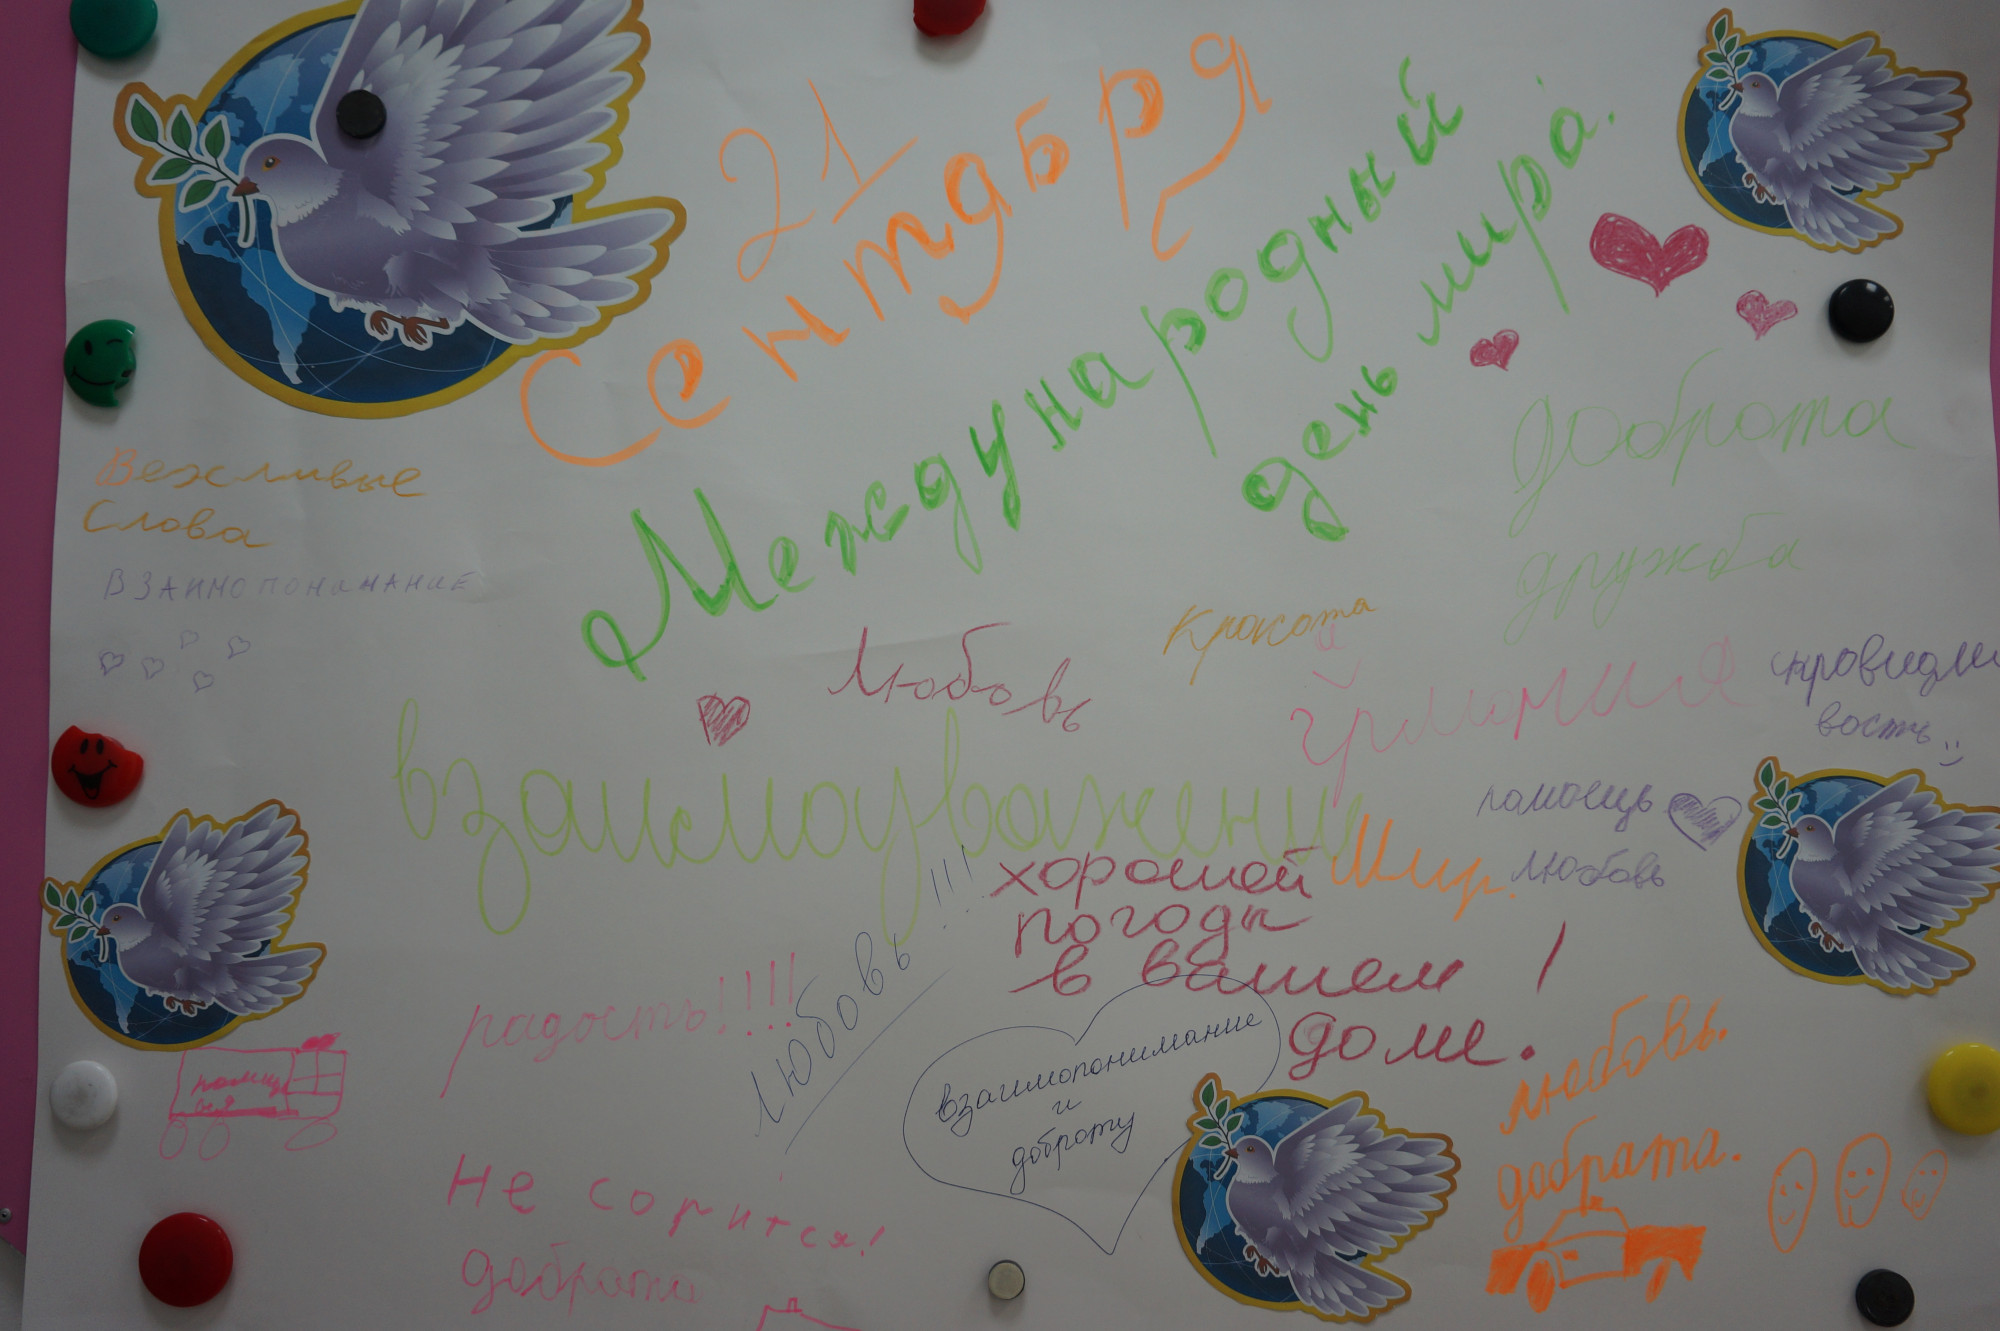 21
Сентября
Международный
день мира.
Вежливые
Слова
ВЗАИМОПОНИМАНИЕ
доброта
дружба
Красота
Любовь
гармония
справидли
вость
взаимоуважение
помощь
любовь
Мир.
хорошей
погоды
в вашем !
доме.
любовь!!!
радость!!!!
взаимопонимание
и
доброту
любовь.
добрата.
Не сорится!
доброта